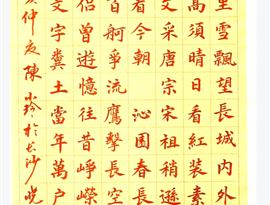 里雪飄望長城內外
高須晴日看紅裝素
文采唐宗宋祖稍遜
看今朝 沁園春長
舸爭流鷹擊長空
侶曾遊憶往昔崢嶸
文字糞土當年萬戶
仲夏陳玲於長沙